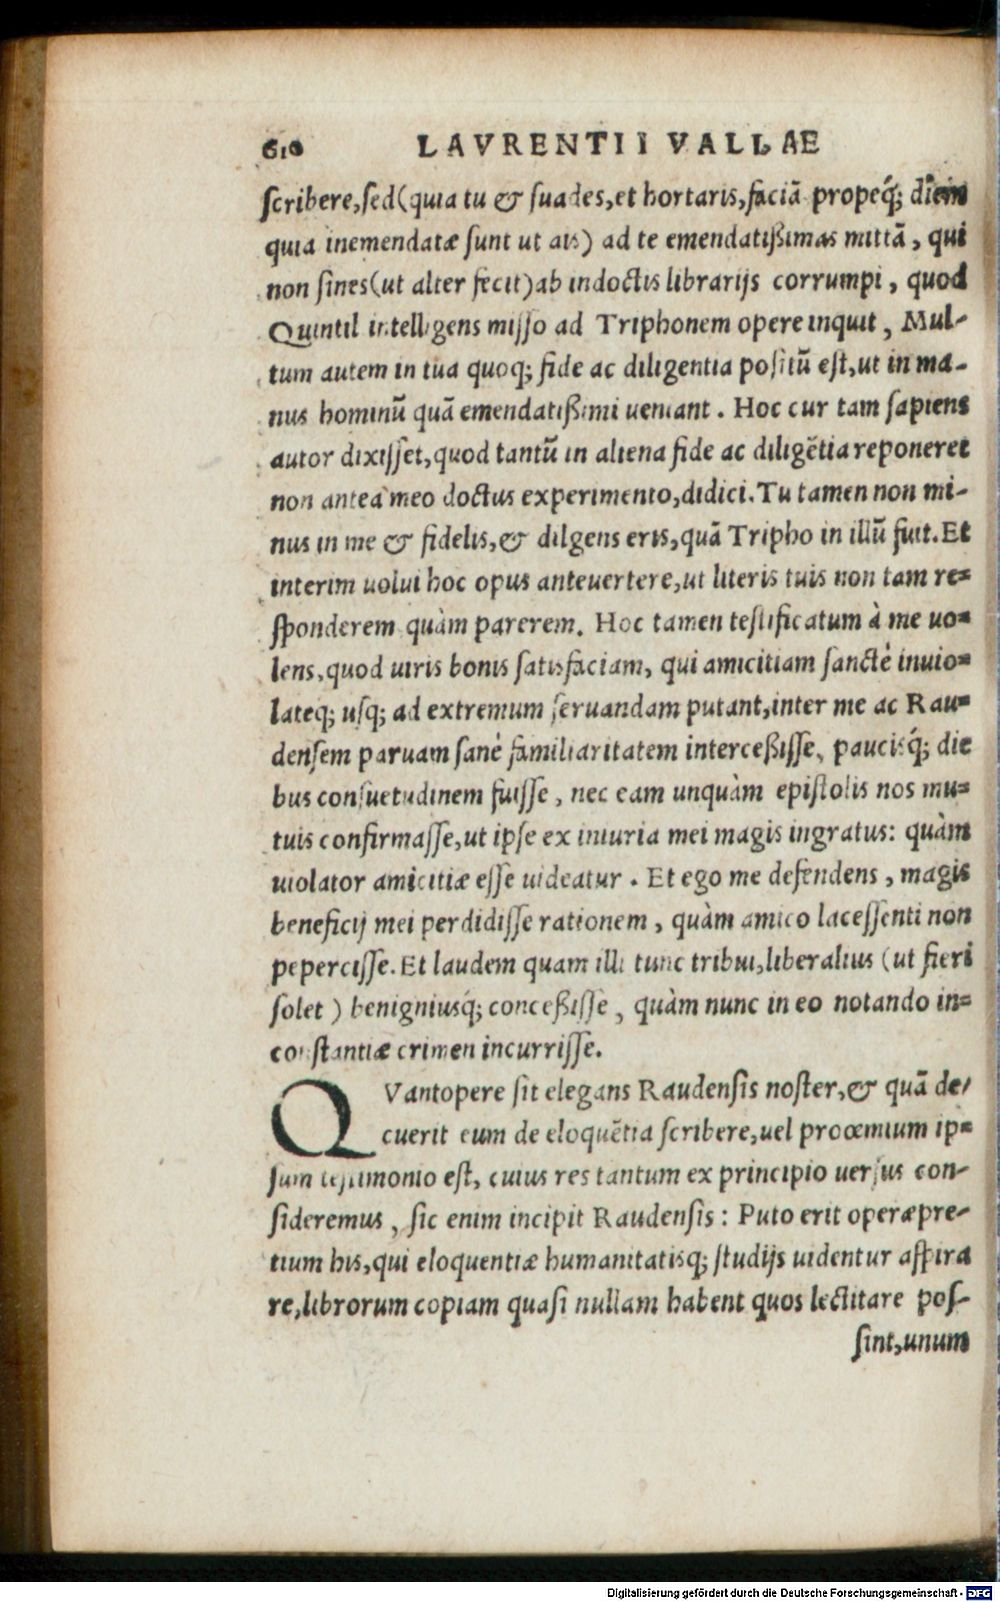 610 LAVRENTII VALLAE
scribere,sed(quia tu & suades,et hortaris,faciā propeq́; diem
quia inemendatæ sunt ut ais) ad te emendatißimas mittā, qui
non sines(ut alter fecit)ab indoctis librarijs corrumpi, quod
Quintil intelligens misso ad Triphonem opere inquit, Mul-
tum autem in tua quoq; fide ac diligentia positū est,ut in ma-
nus hominū quā emendatißimi ueniant. Hoc cur tam sapiens
autor dixisset,quod tantū in aliena fide ac diligētia reponeret
non antea meo doctus experimento,didici.Tu tamen non mi-
nus in me & fidelis,& dilgens eris,quā Tripho in illū fuit.Et
interim uolui hoc opus anteuertere,ut literis tuis non tam re-
sponderem quàm parerem. Hoc tamen testificatum à me uo-
lens,quod uiris bonis satisfaciam, qui amicitiam sanctè inuio-
lateq; usq; ad extremum seruandam putant,inter me ac Rau-
densem paruam sanè familiaritatem interceßisse, paucisq́; die
bus consuetudinem fuisse, nec eam unquàm epistolis nos mu-
tuis confirmasse,ut ipse ex iniuria mei magis ingratus: quàm
uiolator amicitiæ esse uideatur. Et ego me defendens, magis
beneficij mei perdidisse rationem, quàm amico lacessenti non
pepercisse.Et laudem quam illi tunc tribui,liberalius (ut fieri
solet) benigniusq́; conceßisse, quàm nunc in eo notando in-
constantiæ crimen incurrisse.
QVantopere sit elegans Raudensis noster,& quā de-
cuerit eum de eloquētia scribere,uel procemium ip-
sum testimonio est, cuius res tantum ex principio uersus con-
sideremus, sic enim incipit Raudensis: Puto erit operæpre-
tium his,qui eloquentiæ humanitatisq; studijs uidentur aspira
re,librorum copiam quasi nullam habent quos lectitare pos-
sint,unum
Digitalisierung gefördert durch die Deutsche Forschungsgemeinschaft - DFG